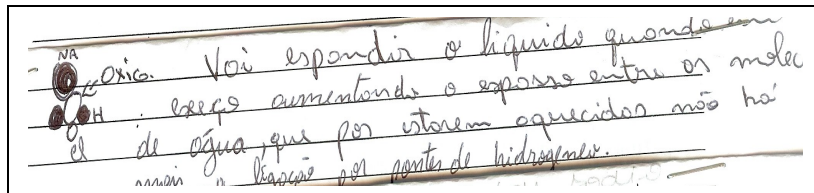 NA
Oxico. Voi espondir o liquido quando em
H exeço aumentando o esposso entre os molec
el de água, que por estarem aquecidos não há
mais a ligação por pontes de hidrogeneo.